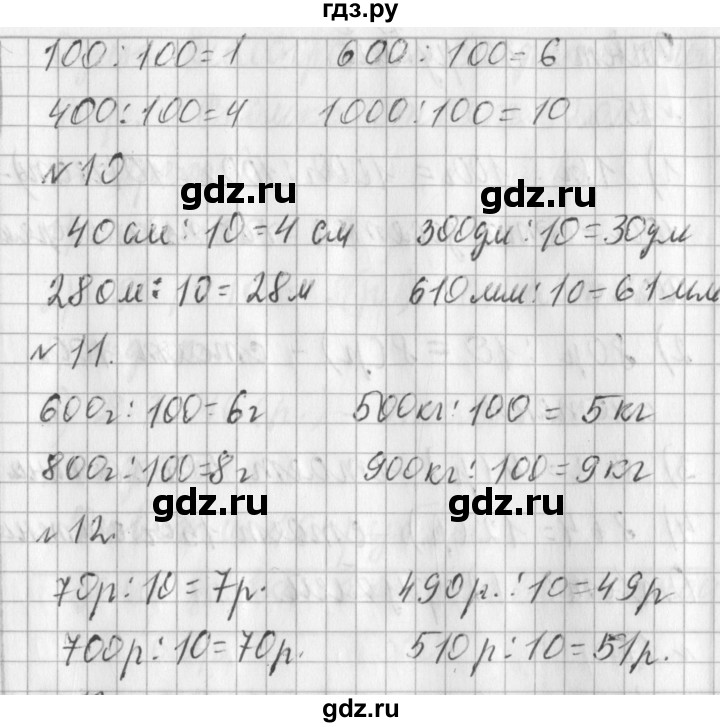 гдз.ру
100:100=1 600:100=6
400:100=4 1000:100=10
№10
gdz.ru gdz.ru
40см:10=4 см 300дм:10=30дм
280м:10=28м 610мм:10=61мм
№11.
600г:100=6г 500кг:100=5кг
800г:100=8г 900кг:100=9кг
gdz.ru gdz.ru
№12.
70р:10=7р. 490р.:10=49р
700р:10=70р. 510р:10=51р.
gdz.ru